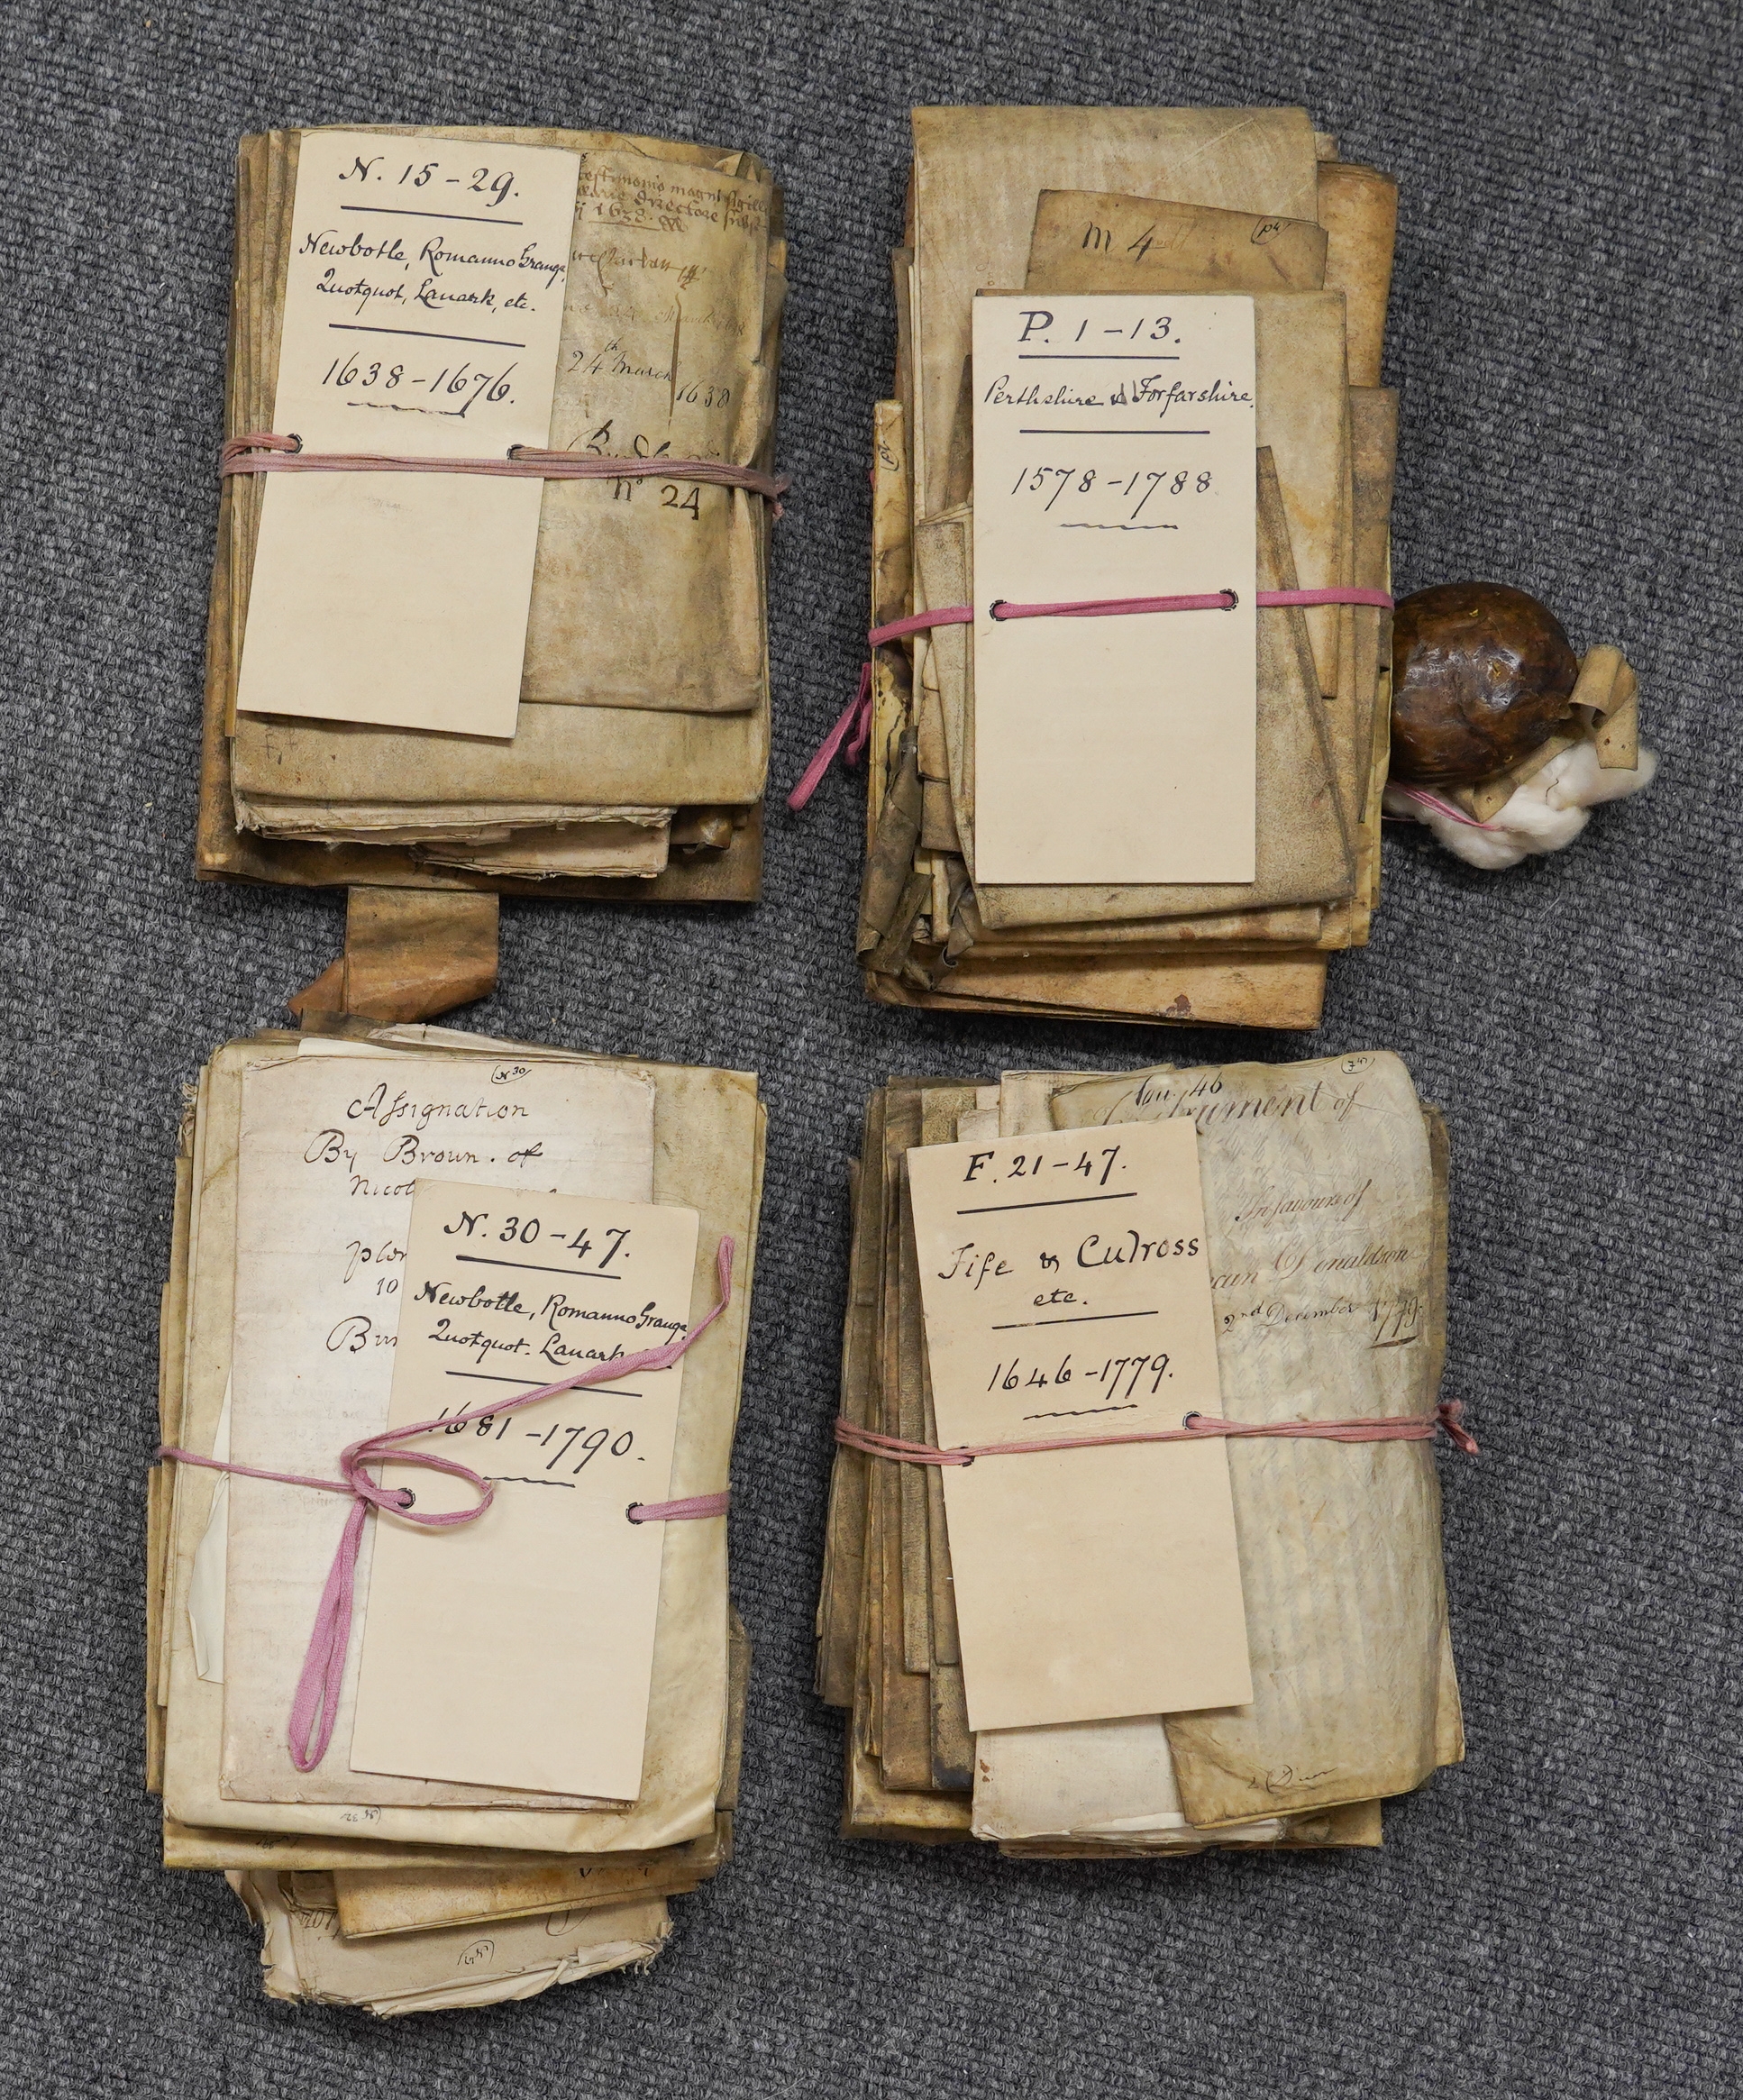 N. 15 - 29.
Newbotle, Romanno Grange,
Quotquot, Lanark, etc.
1638 - 1676.
testimonio magni sigilli
directore
1638.
24th March
1638
No 24
M 4
P. 1 - 13.
Perthshire & Forfarshire.
1578 - 1788
N 30
Assignation
By Broun. of
Nicol
10
N. 30 - 47.
Newbotle, Romanno Grange,
Quotquot. Lanark
1681 - 1790.
46
of
F. 21 - 47.
Fife & Culross
etc.
1646 - 1779.
In favours of
Donaldson
2nd December 1779.